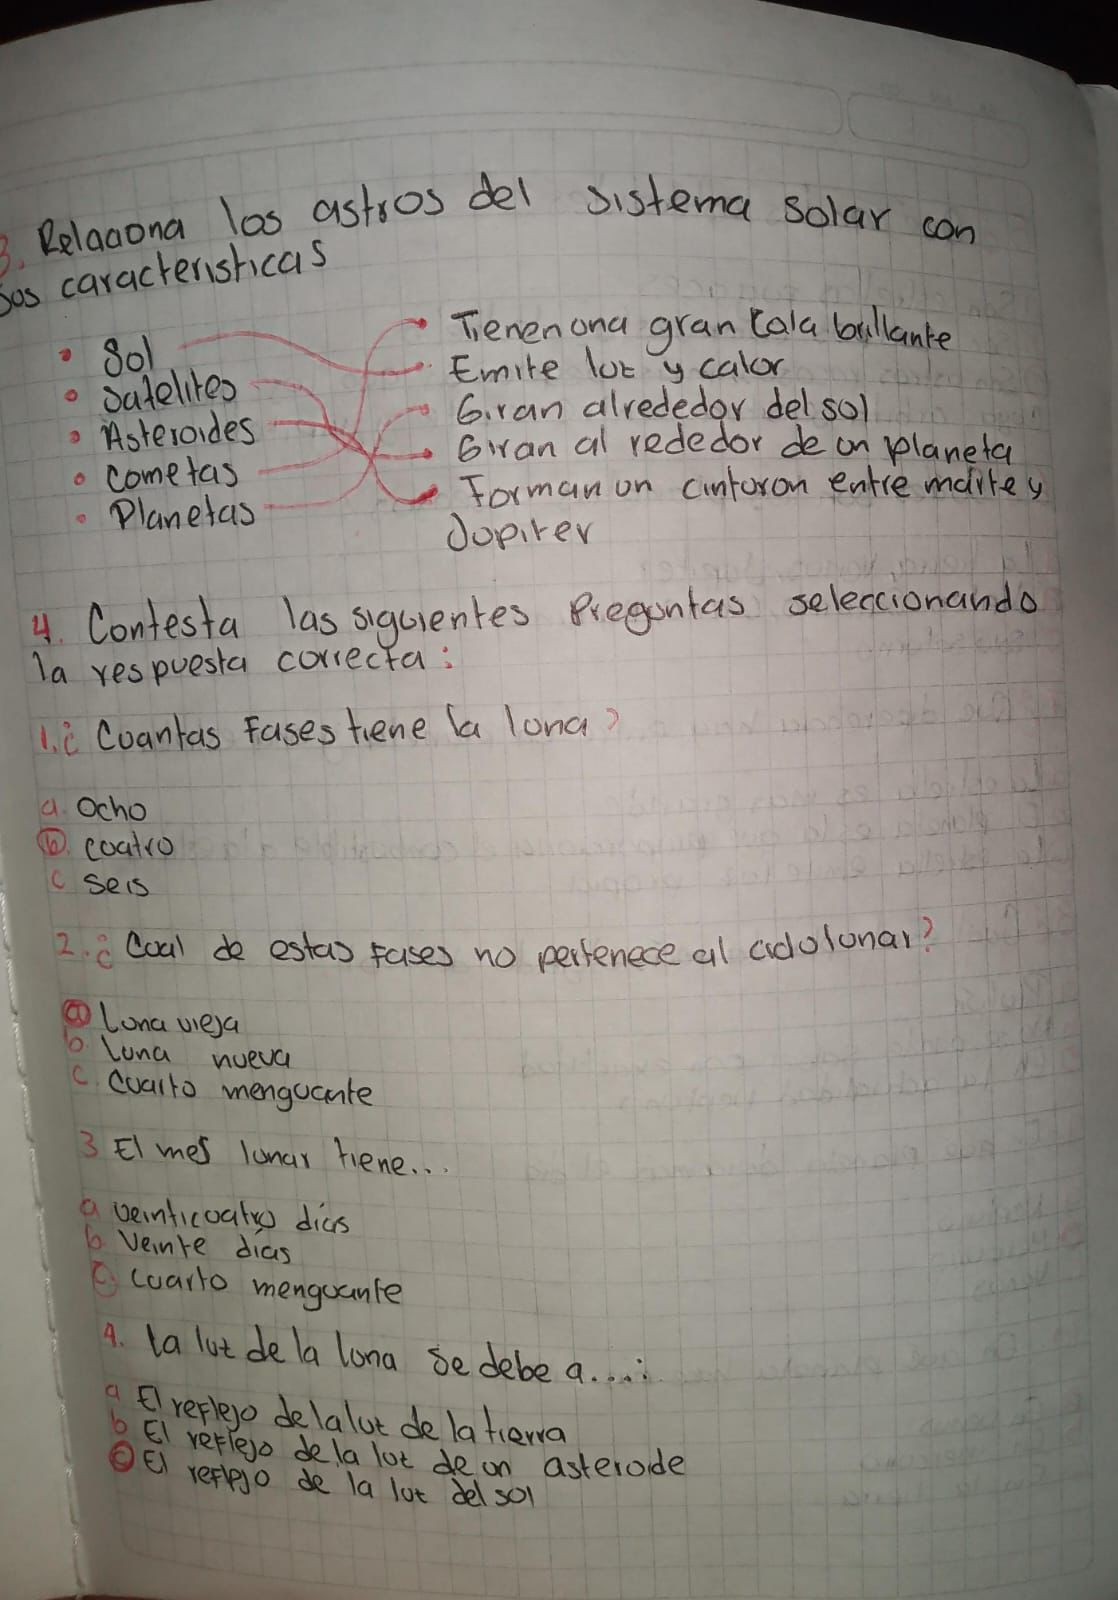 3. Relaciona los astros del sistema solar con
sus caracteristicas
• Sol
• Satelites
• Asteroides
• Cometas
• Planetas
• Tienen una gran Cola brillante
• Emite luz y calor
• Giran alrededor del sol
• Giran al rededor de un planeta
• Forman un cinturon entre marte y
Jupiter
4. Contesta las siguientes Preguntas seleccionando
la respuesta correcta:
1. ¿ Cuantas Fases tiene la luna?
a. Ocho
b. cuatro
c seis
2. ¿ Cual de estas Fases no pertenece al ciclo lunar?
a Luna vieja
b. Luna nueva
c. Cuarto menguante
3 El mes lunar tiene...
a veinticuatro días
b Veinte días
c. cuarto menguante
4. la luz de la luna se debe a....:
a El reflejo de la luz de la tierra
b El reflejo de la luz de un asteroide
c El reflejo de la luz del sol